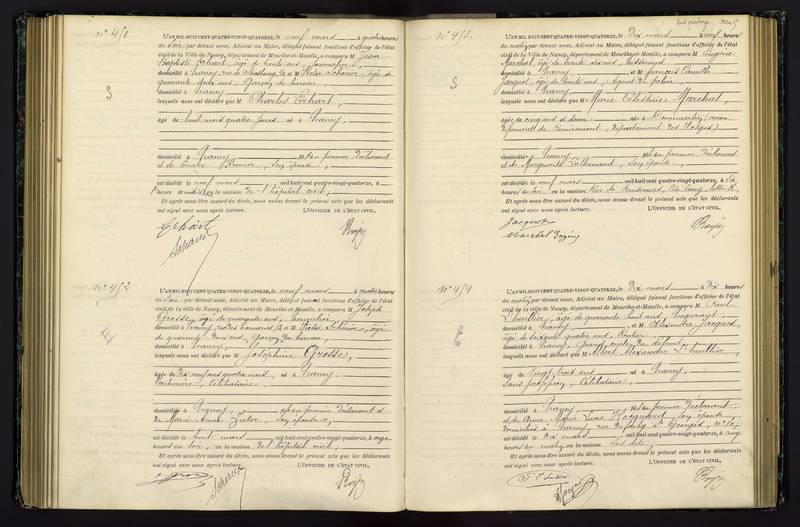 N° 451
L'AN MIL HUIT CENT QUATRE-VINGT-QUATORZE, le neuf mars, à quatre heures
du soir, par devant nous, Adjoint au Maire, délégué faisant fonctions d'officier de l'état
civil de la Ville de Nancy, département de Meurthe-et-Moselle, a comparu M Jean
Baptiste Erhart, âgé de trente ans, Journalier,
domicilié à Nancy, rue de Strasbourg, et M Victor Scherier, âgé de
quarante deux ans, Garçon de bureau,
domicilié à Nancy,
lesquels nous ont déclaré que M Charles Erhart,
âgé de huit mois quatre jours né à Nancy,
domicilié à Nancy, fils du premier Déclarant
et de son épouse,
est décédé le neuf mars mil huit cent quatre-vingt-quatorze, à
heure du en la maison de l'hôpital civil,
Et après nous être assuré du décès, nous avons dressé le présent acte que les déclarants
ont signé avec nous après lecture. L'OFFICIER DE L'ÉTAT CIVIL,
Erhart
N° 452
L'AN MIL HUIT CENT QUATRE-VINGT-QUATORZE, le neuf mars à quatre heures
du soir, par devant nous, Adjoint au Maire, délégué faisant fonctions d'officier de l'état
civil de la ville de Nancy, département de Meurthe-et-Moselle, a comparu M Joseph
Grosse, âgé de quarante ans,
domicilié à Nancy, et Victor Scherier, âgé
de quarante deux ans, Garçon de bureau,
domicilié à Nancy,
lesquels nous ont déclaré que M Joséphine Grosse,
âgée de Dix neuf ans quatre mois, née à Nancy
Célibataire,
domiciliée à Nancy, fille du premier Déclarant et
de Marie Anne Zuber, son épouse,
est décédée le huit mars mil huit cent quatre-vingt-quatorze, à onze
heures du soir, en la maison de l'hôpital civil,
Et après nous être assuré du décès, nous avons dressé le présent acte que les déclarants
ont signé avec nous après lecture. L'OFFICIER DE L'ÉTAT CIVIL,
N° 453
L'AN MIL HUIT CENT QUATRE-VINGT-QUATORZE, le Dix mars, à neuf heures
du matin, par devant nous, Adjoint au Maire, délégué faisant fonctions d'officier de l'état
civil de la Ville de Nancy, département de Meurthe-et-Moselle, a comparu M Eugène
Marchal, âgé de trente six ans, Tisserand,
domicilié à Nancy, et M François Camille
Jacquot, âgé de trente ans, Agent de police,
domicilié à Nancy,
lesquels nous ont déclaré que M Marie Célestine Marchal,
âgée de cinq ans et demi née à Dommartin (arron
dissement de Remiremont, département des Vosges)
domiciliée à Nancy, fille du premier Déclarant
et de Marguerite Lallemand, son épouse,
est décédée le neuf mars mil huit cent quatre-vingt-quatorze, à six
heures du soir en la maison Rue de
Et après nous être assuré du décès, nous avons dressé le présent acte que les déclarants
ont signé avec nous après lecture. L'OFFICIER DE L'ÉTAT CIVIL,
Jacquot
Marchal Eugène
L'AN MIL HUIT CENT QUATRE-VINGT-QUATORZE, le Dix mars, à Dix heures
du matin, par devant nous, Adjoint au Maire, délégué faisant fonctions d'officier de l'état
civil de la Ville de Nancy, département de Meurthe-et-Moselle, a comparu M Paul
L'huillier, âgé de quarante huit ans,
domicilié à Nancy, et M Alexandre Jacques,
âgé de soixante quatre ans, Rentier,
domicilié à Nancy, Grand oncle du défunt,
lesquels nous ont déclaré que M Albert Alexandre L'huillier,
âgé de Vingt trois ans né à Nancy,
sans profession, Célibataire,
domicilié à Nancy, fils du premier Déclarant,
et de Anne Marie Lucie Hocquard, son épouse,
domiciliés à Nancy, rue du faubg St Georges, N° 10,
est décédé le Dix mars, mil huit cent quatre-vingt-quatorze, à cinq
heures du matin, en la maison
Et après nous être assuré du décès, nous avons dressé le présent acte que les déclarants
ont signé avec nous après lecture. L'OFFICIER DE L'ÉTAT CIVIL,